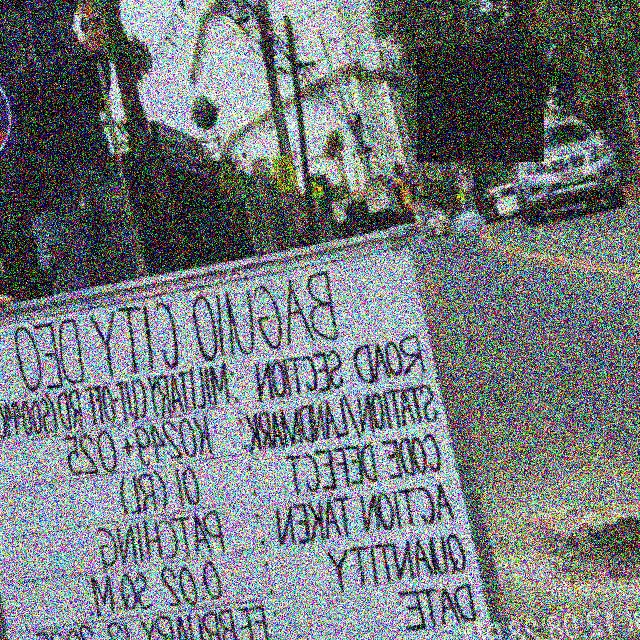 BAGUIO CITY DEO
ROAD SECTION : MILITARY CUT-OFF RD
STATION/LANDMARK : K0249+025
CODE DEFECT : 01 (RL)
ACTION TAKEN : PATCHING
QUANTITY : 0.02 SQ.M
DATE : FEBRUARY